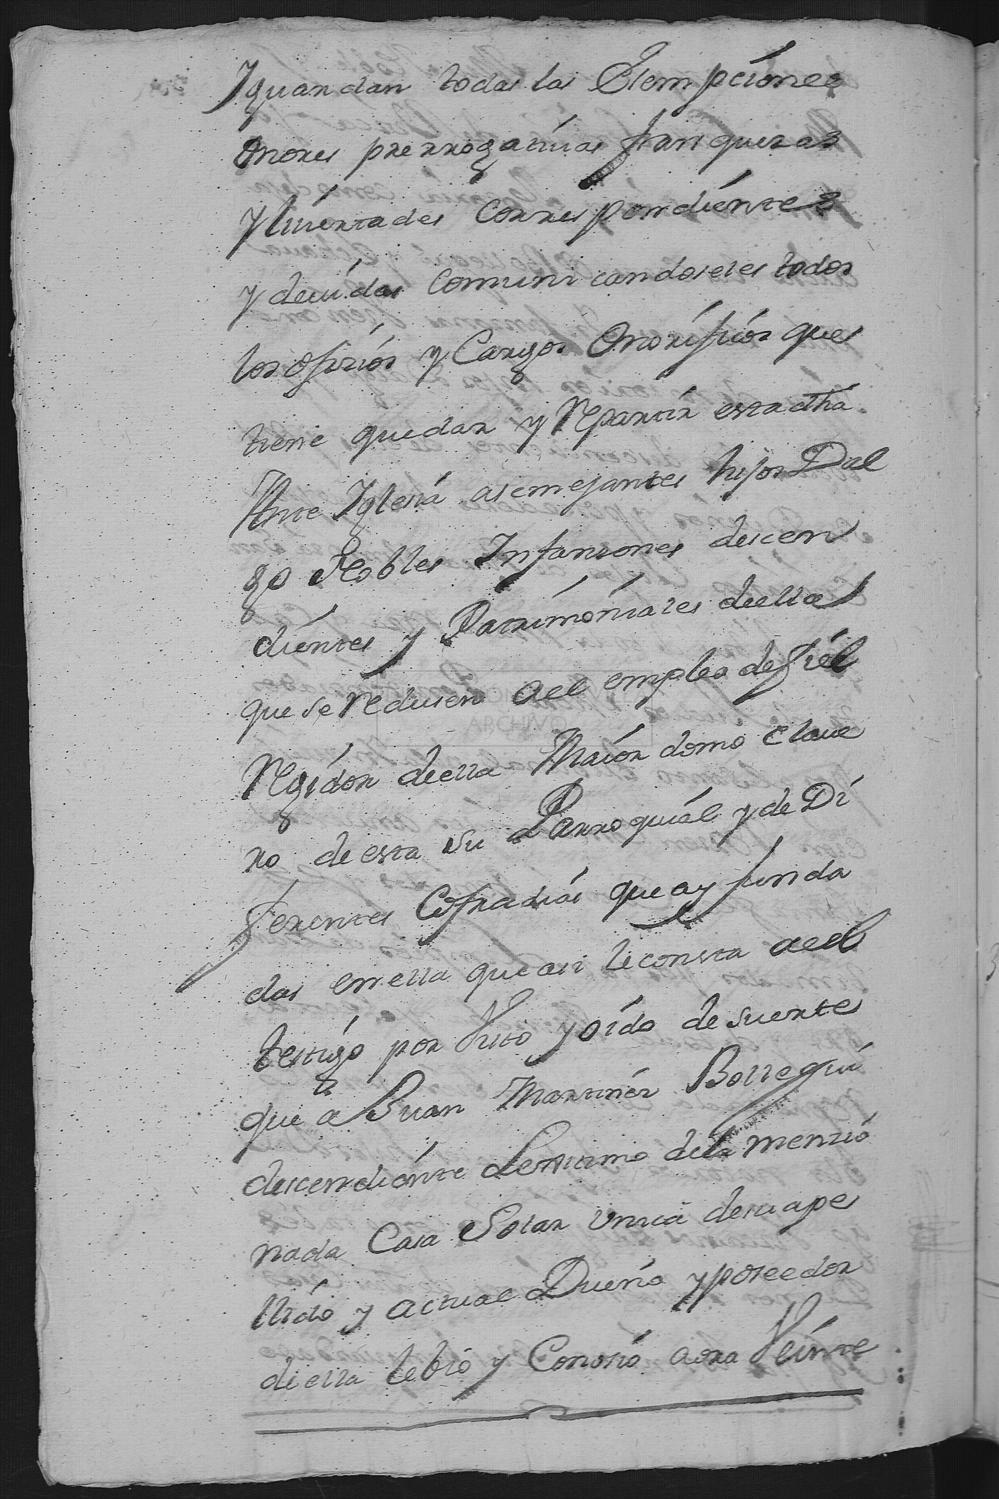 Y guardan todas las Esempciones
onores prerrogativas franquezas
y livertades correspondientes
y devidas comunicandoseles todos
los ofizios y Cargos Onorificos que
tiene que dar y Repartir esta dha
Ante Iglesia a semejantes hijos Dal
go Nobles Infanzones descen
dientes y Patrimoniales de ella
que se reducen a el empleo de fiel
Regidor de ella Maiordomo clave
ro de esta su Parroquial y de Di
ferentes Cofradias que ay funda
das en ella que asi le consta a el
testigo por visto y oido de suerte
que a Juan Martinez Bolleguí
descendiente Lexitimo de la menzio
nada Casa Solar Unica de su ape
llido y actual Dueño y poseedor
de ella le bio y Conozio aora Veinte
ARCHIVO